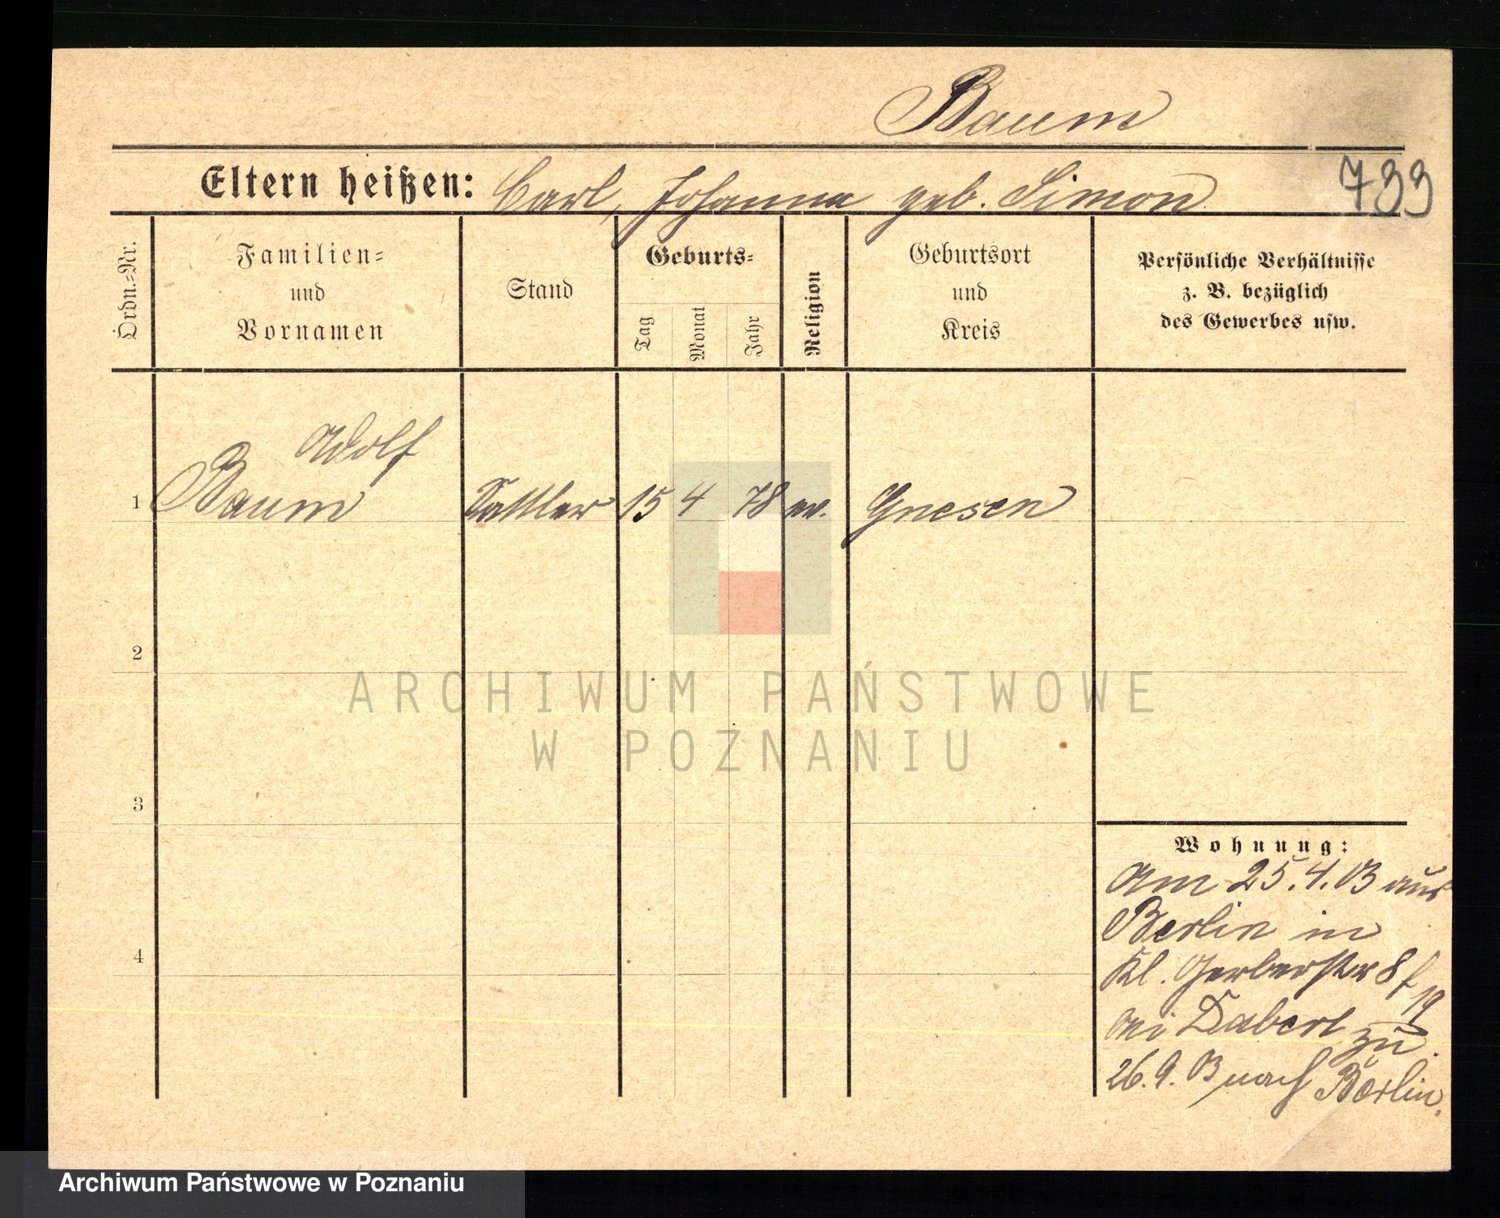 Baum
733
Eltern heißen: Carl, Johanna geb. Simon
Ordn.-Nr.
Familien-
und
Vornamen
Stand
Geburts-
Tag
Monat
Jahr
Religion
Geburtsort
und
Kreis
Persönliche Verhältnisse
z. B. bezüglich
des Gewerbes usw.
Adolf
1 Baum Sattler 15 4 78 ev. Gnesen
2
ARCHIWUM PAŃSTWOWE
W POZNANIU
3
4
Wohnung:
Am 25.4.03 aus
Berlin in
Kl. Gerberstr 8
19
bei Dabert zu.
26.9.03 nach Berlin.
Archiwum Państwowe w Poznaniu